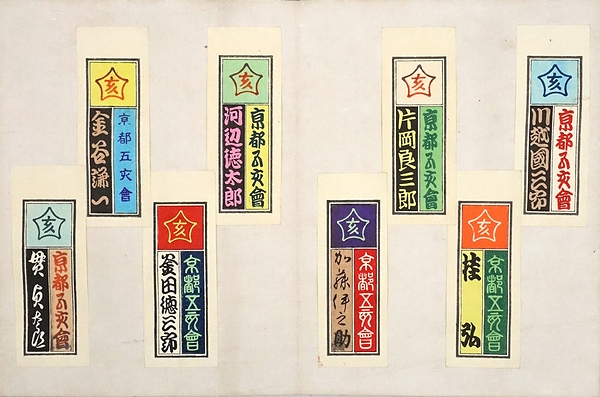 亥
京都五亥會
川越國三郎
亥
京都五亥會
桂弘
亥
京都五亥會
片岡良三郎
亥
京都五亥會
加藤伊之助
亥
京都五亥會
河辺徳太郎
亥
京都五亥會
釜田徳三郎
亥
京都五亥會
金谷謙一
亥
京都五亥會